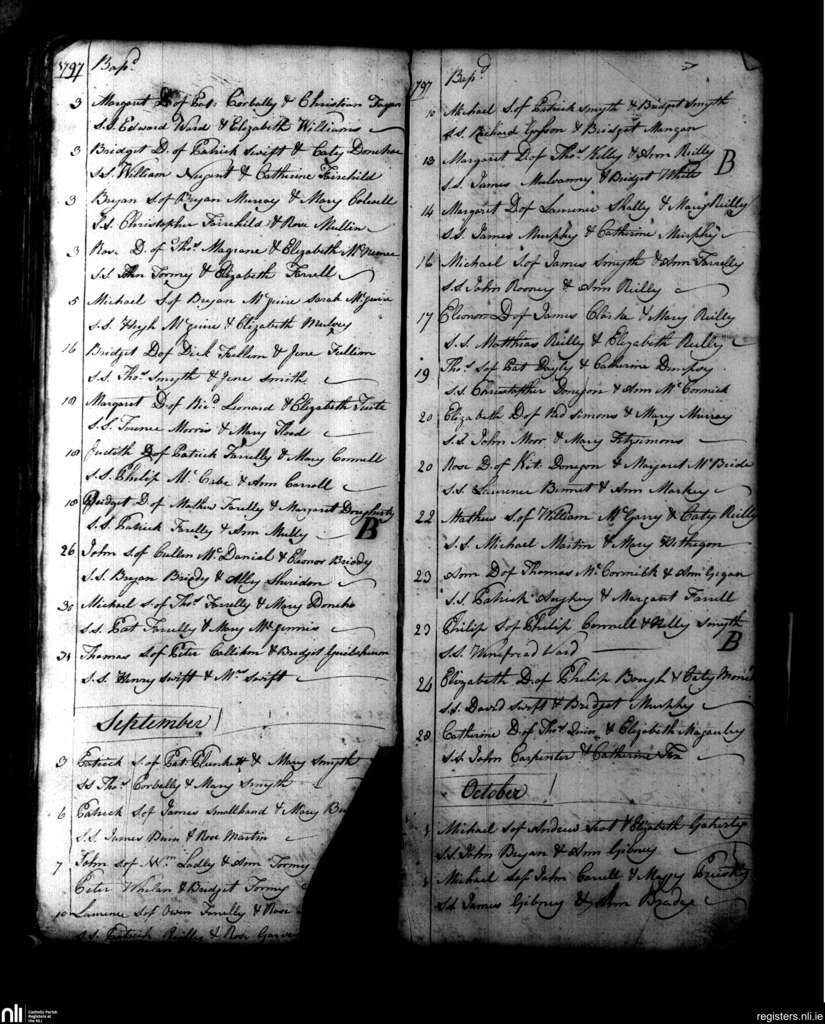 1797 Bapd
3 Margaret D of Pat: Corbally & Christian Fagan
S.S. Edward Ward & Elizabeth Williams
3 Bridget D. of Patrick Swift & Caty Donohue
S.S. William Nugent & Catherine Fairchild
3 Bryan S of Bryan Murray & Mary Colwell
S.S. Christopher Fairchild & Rose Mullin
3 Rose D. of Thos Magrane & Elizabeth
S.S. John Tormy & Elizabeth Farrell
5 Michael S of Bryan McGuire Sarah McGuire
S.S. Hugh McGuire & Elizabeth
16 Bridget D of Dick Fullam & Jane Fullam
S.S. Thos Smyth & Jane Smith
18 Margaret D. of Ricd Leonard & Elizabeth Tuite
S.S. Morris & Mary Flood
18 Judith D of Patrick Farrelly & Mary Connell
S.S. Philip McCabe & Ann Carroll
18 Bridget D of Mathew Farrelly & Margaret
S.S. Patrick Farelly & Ann Mully B
26 John S of Cullen McDaniel & Eleonor Briody
S.S. Bryan Briody & Alley Sheridon
30 Michael S of Thos Farrelly & Mary Donoho
S.S. Pat Farrelly & Mary McGinnis
31 Thomas S of Peter Callihon & Bridget
S.S. Henry Swift & Mrs Swift
September
3 Patrick S of Pat: Plunket & Mary Smyth
SS Thos Corbally & Mary Smyth
6 Patrick S of James Smallhand & Mary
S.S. James Dunn & Rose Martin
7 John S of Wm Lally & Ann Tormy
Peter Whelan & Bridget Tormy
10 Laurence S of Owen Farrelly & Rose
S.S. Patrick Reilly & Rose
1797 Bapd
10 Michael S of Patrick Smyth & Bridget Smyth
S.S. Richard & Bridget Mangan
13 Margaret D of Thos Kelly & Ann Reilly B
S.S. James Mulvanny & Bridget White
14 Margaret D of Laurence Skally & Mary Reilly
S.S. James Murphy & Catherine Murphy
16 Michael S of James Smyth & Ann Farrelly
S.S. John Rooney & Ann Reilly
17 Eleonor D of James Clarke & Mary Reilly
S.S. Matthias Reilly & Elizabeth Reilly
19 Thos S of Pat & Catherine Dempsy
S.S. Christopher Donegon & Ann McCormick
20 Elizabeth D of Simons & Mary Murray
S.S. John Moor & Mary Fitzsimons
20 Rose D. of Kit: Donegon & Margaret McBride
S.S. Laurence Bennet & Ann Markey
22 Mathew S. of William McGarry & Caty Reilly
S.S. Michael Martin & Mary
23 Ann D of Thomas McCormick & Ann Gegan
S.S. Patrick & Margaret Farrell
23 Philip S of Philip Connell & Nelly Smyth
S.S. Winefread Ward B
24 Elizabeth D. of Philip Bough & Caty
S.S. David Swift & Bridget Murphy
28 Catherine D. of Thos Quin & Elizabeth Magauley
S.S. John Carpenter & Catherine
October
1 Michael S of Andrew Scot & Elizabeth
S.S. John Bryan & Ann Gibney
Michael S of John Carroll & Massy
S.S. James Gibney & Ann Bradye
nli Catholic Parish Registers at the NLI
registers.nli.ie